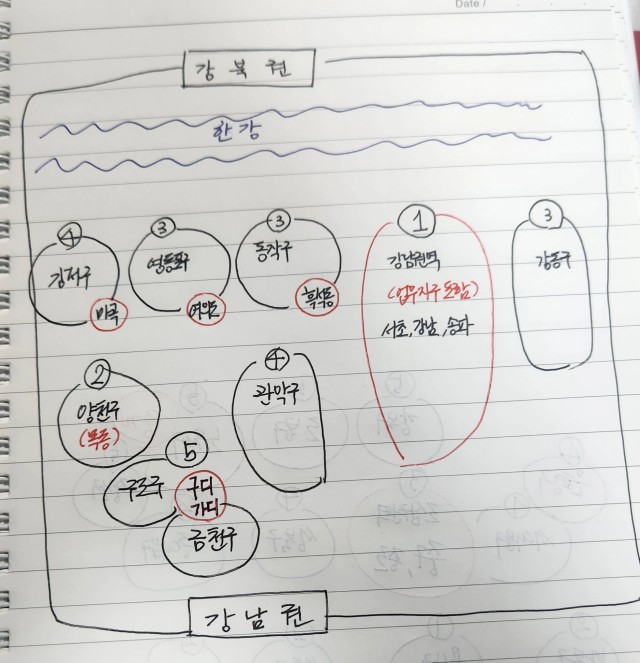 Date /
강북권
한강
④
강서구
마곡
③
영등포구
여의도
③
동작구
흑석동
①
강남권역
(업무지구 포함)
서초, 강남, 송파
③
강동구
②
양천구
(목동)
④
관악구
⑤
구로구
구디
가디
금천구
강남권